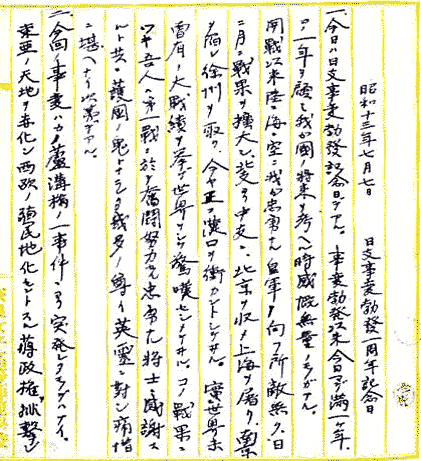 昭和十三年七月七日　日支事変勃發一周年記念日
一、今日ハ日支事変勃發記念日デアル。事変勃發以来今日デ満一ヶ年、
コノ一年ヲ顧ミ我ガ国ノ将来ヲ考ヘル時感慨無量ノモノガアル。
開戰以来陸海空ニ我ガ忠勇ナル皇軍ノ向フ所敵無ク、日
ニ月ニ戰果ヲ擴大シ、北支ヨリ中支ニ、北京ヲ収メ上海ヲ屠リ、南京
ヲ陥シ徐州ヲ取リ、今ヤ正ニ漢口ヲ衝カントシツヽアル。實ニ世界未
曾有ノ大戰績ヲ挙ゲ世界ヲシテ驚嘆セシメツヽアル。コノ戰果ニ
ツキ吾人ハ第一戰ニ於テ奮闘努力セル忠勇ナル将士ニ感謝ス
ルト共ニ護国ノ鬼トナラレタ幾多ノ尊イ英靈ニ對シ痛惜
ニ堪ヘナイ次第デアル。
二、今回ノ事変ハカノ蘆溝橋ノ一事件ヨリ突発シタモノデハナイ。
東亜ノ天地ヲ赤化シ西欧ノ殖民地化セントスル蔣政権